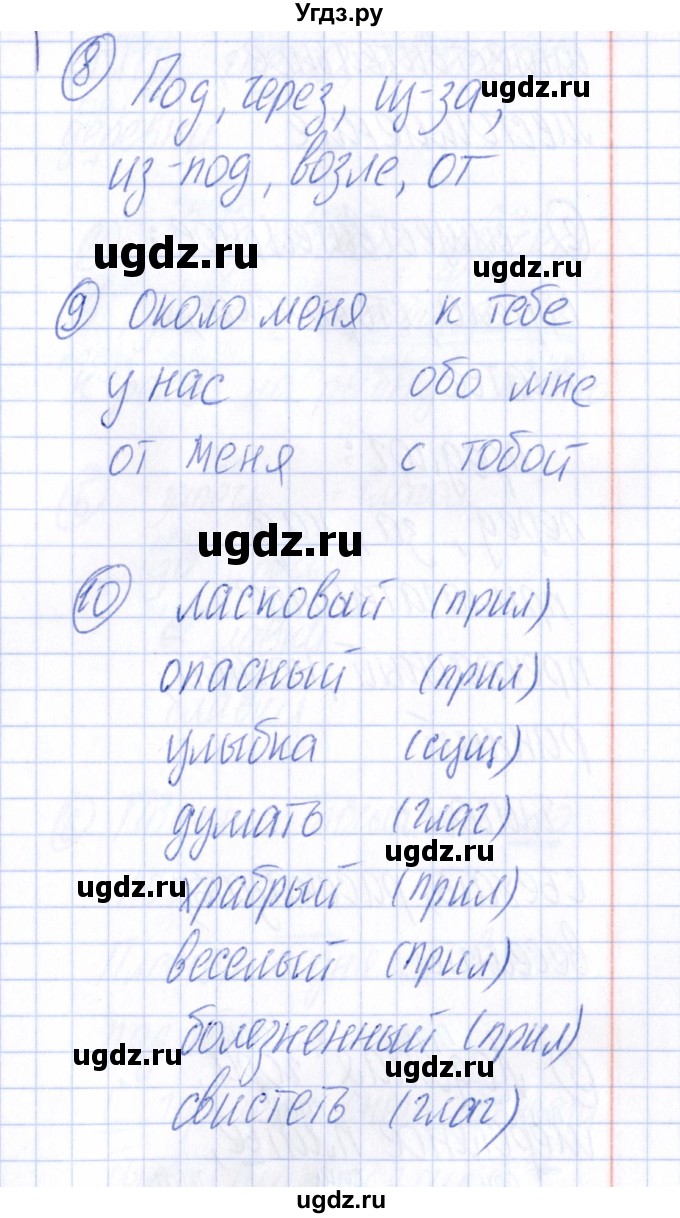 Угдз.ру
8 Под, через, из-за,
ugdz.ru
из-под, возле, от
ugdz.ru
ugdz.ru
9 около меня к тебе
у нас обо мне
от меня с тобой
ugdz.ru
10 ласковый (прил)
опасный (прил)
улыбка (сущ)
думать (глаг)
ugdz.ru
ugdz.ru
храбрый (прил)
веселый (прил)
болезненный (прил)
ugdz.ru
ugdz.ru
свистеть (глаг)
ugdz.ru